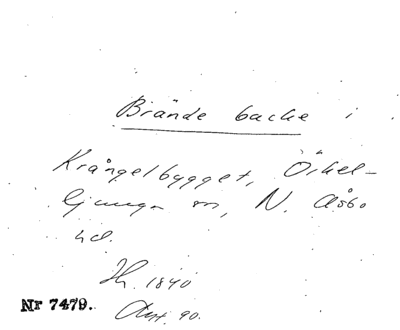 Brände backe i
Krångelbygget, Örkel-
ljunga sn, N. Åsbo
hd.
1840
Nr 7479.
90.